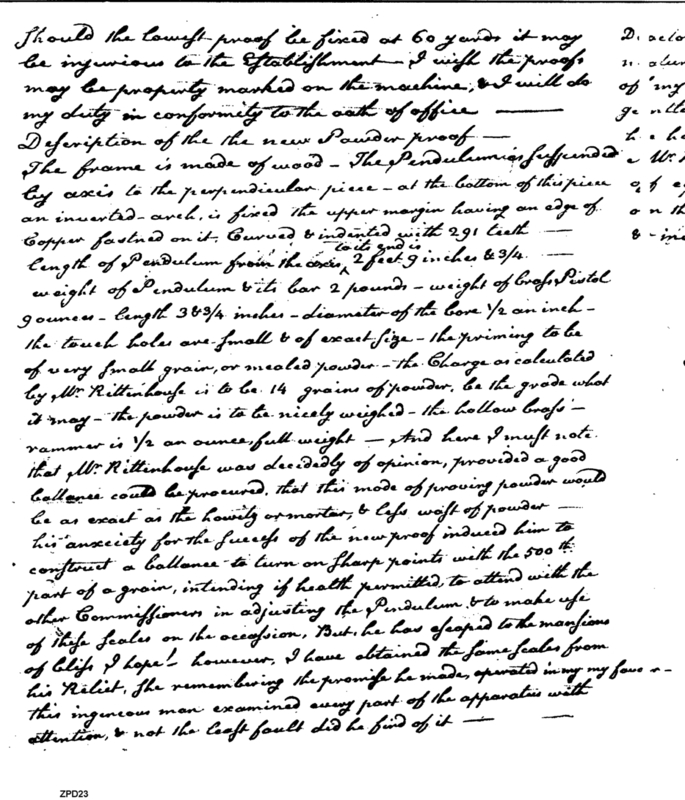 Should the lowest proof be fixed at 60 yards it may
be injurious to the Establishment – I wish the proofs
may be property marked on the machine, & I will do
my duty in conformity to the oath of office —
Description of the the new Powder proof —
The frame is made of wood – The Pendulum is suspended
by axis to the perpendicular piece – at the bottom of this piece
an inverted arch, is fixed the upper margin having an edge of
Copper fastned on it, Curved & indented with 291 teeth —
to its end is
length of Pendulum from the axis ‸ 2 feet 9 inches & 3/4
weight of Pendulum & its bar 2 pounds – weight of brass Pistol
9 ounces – length 3 & 3/4 inches – diameter of the bore 1/2 an inch –
the touch holes are small & of exact size – the priming to be
of very small grain, or mealed powder – the Charge as calculated
by Mr. Rittenhouse is to be 14 grains of powder, be the grade what
it may – the powder is to be nicely weighed – the hollow brass –
rammer is 1/2 an ounce, full weight — And here I must note
that Mr. Rittinhouse was decidedly of opinion, provided a good
ballance could be procured, that this mode of proving powder would
be as exact as the howitz or mortar, & less wast of powder —
his anxciety for the success of the new proof induced him to
construct a ballance to turn on sharp points with the 500th
part of a grain, intending if health permitted to attend with the
other Commissioners in adjusting the Pendulum & to make use
of these scales on the occassion, But, he has escaped to the mansions
of bliss I hope! – however, I have obtained the same scales from
his Relict, she remembering the promise he made, operated in my my favor –
this ingeneous man examined every part of the apparatus with
attention, & not the least fault did he find of it —
of my
on th
ZPD23